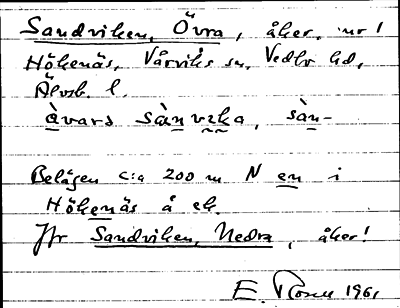 Sandviken, Övra, åker, nr 1
Hökenäs, Vårviks sn, Vedbo hd,
Älvsb. l.
àvara sànvɛka, sàn-
Belägen c:a 200 m N en i
Hökenäs å ek.
Jfr Sandviken, Nedra, åker!
E. 1961